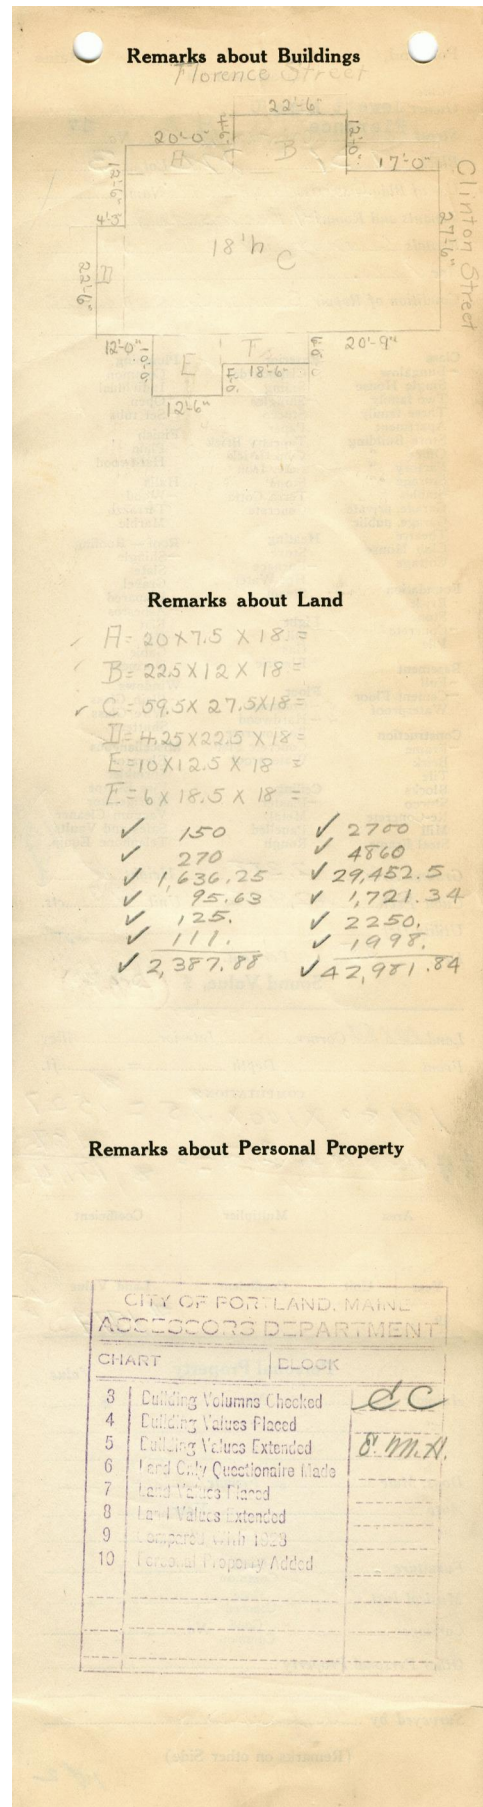 Remarks about Buildings
Florence Street
22'-6"
4'-6"
12'-0"
20'-0"
A
B
17'-0"
12'-6"
Clinton Street
4'-3"
18'h
C
27'-6"
22'-6"
D
12'-0"
10'-0"
E
F
18'-6"
6'-0"
6'-0"
20'-9"
12'-6"
Remarks about Land
A = 20 X 7.5 X 18. =
B = 22.5 X 12 X 18 =
✓ C = 59.5 X 27.5 X 18 =
D = 4.25 X 22.5 X 18 =
E = 10 X 12.5 X 18 =
F = 6 X 18.5 X 18 =
✓ 150 ✓ 2700
✓ 270 ✓ 4860
✓ 1,636.25 ✓ 29,452.5
✓ 95.63 ✓ 1,721.34
✓ 125. ✓ 2250.
✓ 111. ✓ 1998.
✓ 2,387.88 ✓ 42,981.84
Remarks about Personal Property
CITY OF PORTLAND, MAINE
ASSESSORS DEPARTMENT
CHART BLOCK
3 Building Volumns Checked CC
4 Building Values Placed
5 Building Values Extended E.M.H.
6 Land Only Questionaire Made
7 Land Values Placed
8 Land Values Extended
9 Compared With 1923
10 Personal Property Added
(Remarks on other Side)